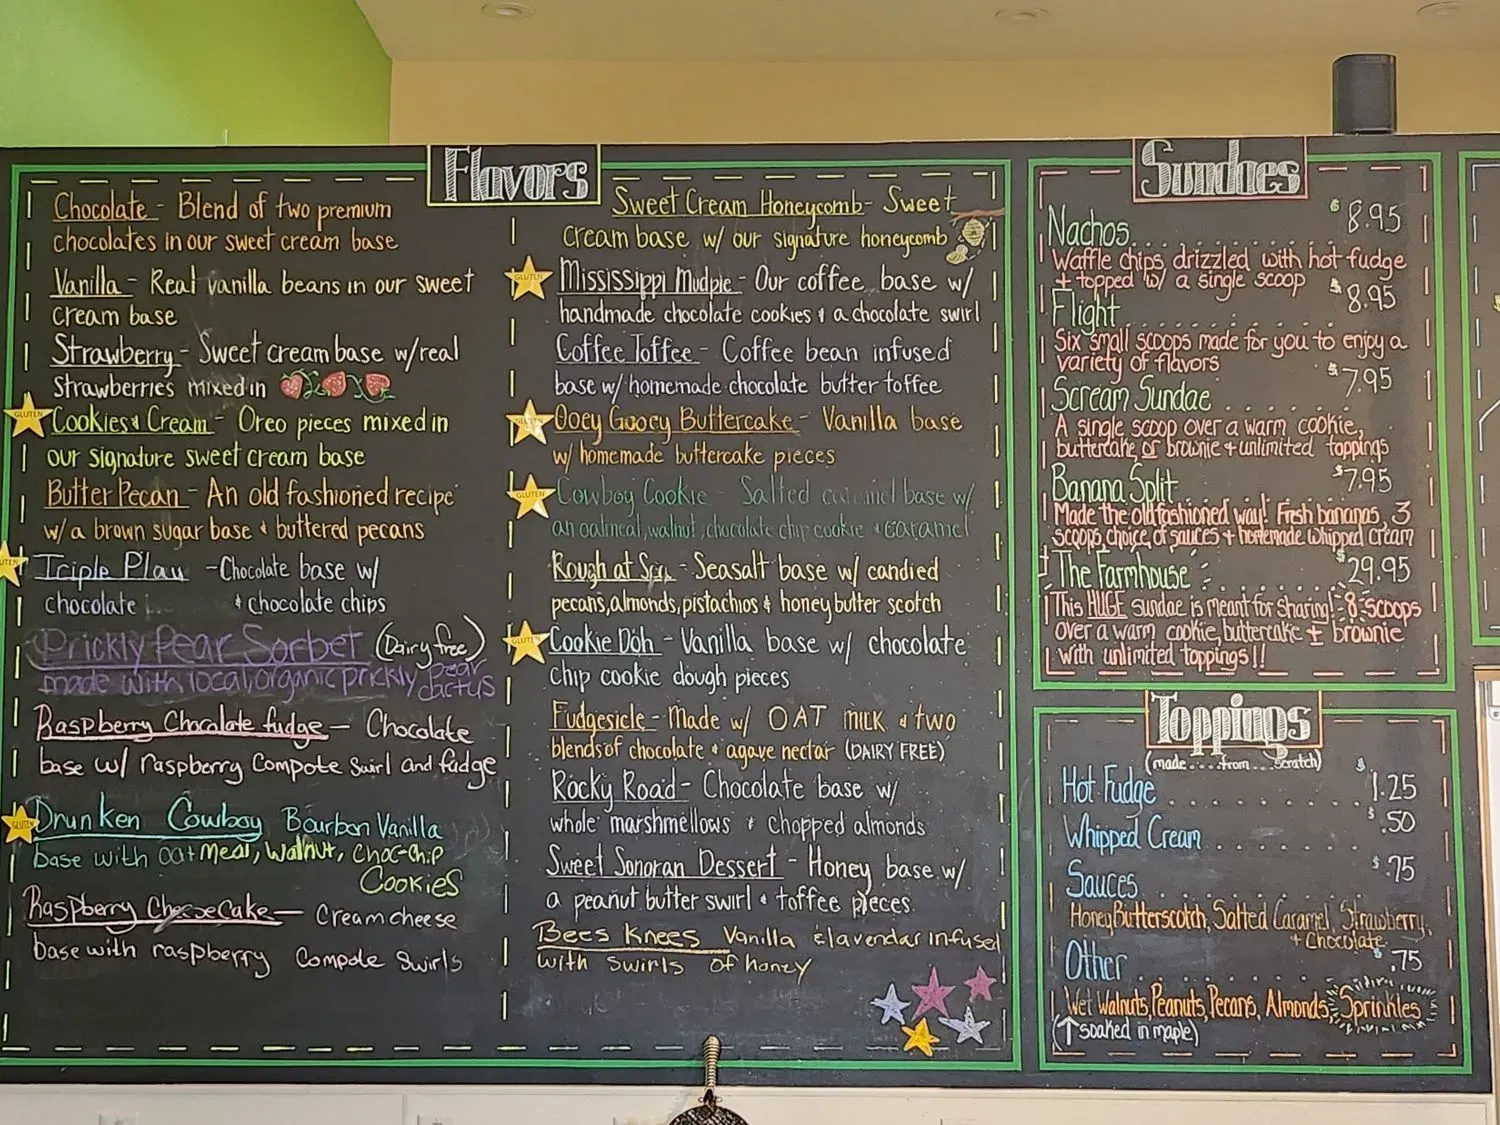 Flavors
Chocolate - Blend of two premium
chocolates in our sweet cream base
Vanilla - Real vanilla beans in our sweet
cream base
Strawberry - Sweet cream base w/real
Strawberries mixed in
GLUTEN
Cookies & Cream - Oreo pieces mixed in
our signature sweet cream base
Butter Pecan - An old fashioned recipe
w/ a brown sugar base & buttered pecans
Triple Play - Chocolate base w/
chocolate & chocolate chips
Prickly Pear Sorbet (Dairy free)
made with local, organic prickly pear
cactus
Raspberry Chocolate fudge - Chocolate
base w/ raspberry Compote Swirl and fudge
GLUTEN
Drunken Cowboy Bourbon Vanilla
base with oatmeal, walnut, choc-chip
Cookies
Raspberry CheeseCake - Cream cheese
base with raspberry Compote Swirls
Sweet Cream Honeycomb - Sweet
cream base w/ our signature honeycomb
GLUTEN
Mississippi Mudpie - Our coffee base w/
handmade chocolate cookies & a chocolate swirl
Coffee Toffee - Coffee bean infused
base w/ homemade chocolate butter toffee
GLUTEN
Ooey Gooey Buttercake - Vanilla base
w/ homemade buttercake pieces
GLUTEN
Cowboy Cookie - Salted caramel base w/
an oatmeal, walnut, chocolate chip cookie & caramel
Rough at Sea - Seasalt base w/ candied
pecans, almonds, pistachios & honey butter scotch
GLUTEN
Cookie Doh - Vanilla base w/ chocolate
chip cookie dough pieces
Fudgesicle - Made w/ OAT MILK & two
blends of chocolate & agave nectar (DAIRY FREE)
Rocky Road - Chocolate base w/
whole marshmellows & chopped almonds
Sweet Sonoran Dessert - Honey base w/
a peanut butter swirl & toffee pieces.
Bees Knees Vanilla & lavendar infused
with swirls of honey
Sundaes
Nachos........ $8.95
Waffle chips drizzled with hot fudge
+ topped w/ a single scoop
Flight........ $8.95
Six small scoops made for you to enjoy a
variety of flavors
Scream Sundae........ $7.95
A single scoop over a warm cookie,
buttercake, or brownie + unlimited toppings
Banana Split........ $7.95
Made the old fashioned way! Fresh bananas, 3
scoops, choice of sauces + homemade whipped cream
The Farmhouse........ $29.95
This HUGE sundae is meant for sharing! - 8 scoops
over a warm cookie, buttercake + brownie
with unlimited toppings!!
Toppings
(made....from....scratch)
Hot Fudge........ $1.25
Whipped Cream........ $.50
Sauces........ $.75
Honey Butterscotch, Salted Caramel, Strawberry,
+ Chocolate
Other........ $.75
Wet Walnuts, Peanuts, Pecans, Almonds, Sprinkles
(↑ soaked in maple)